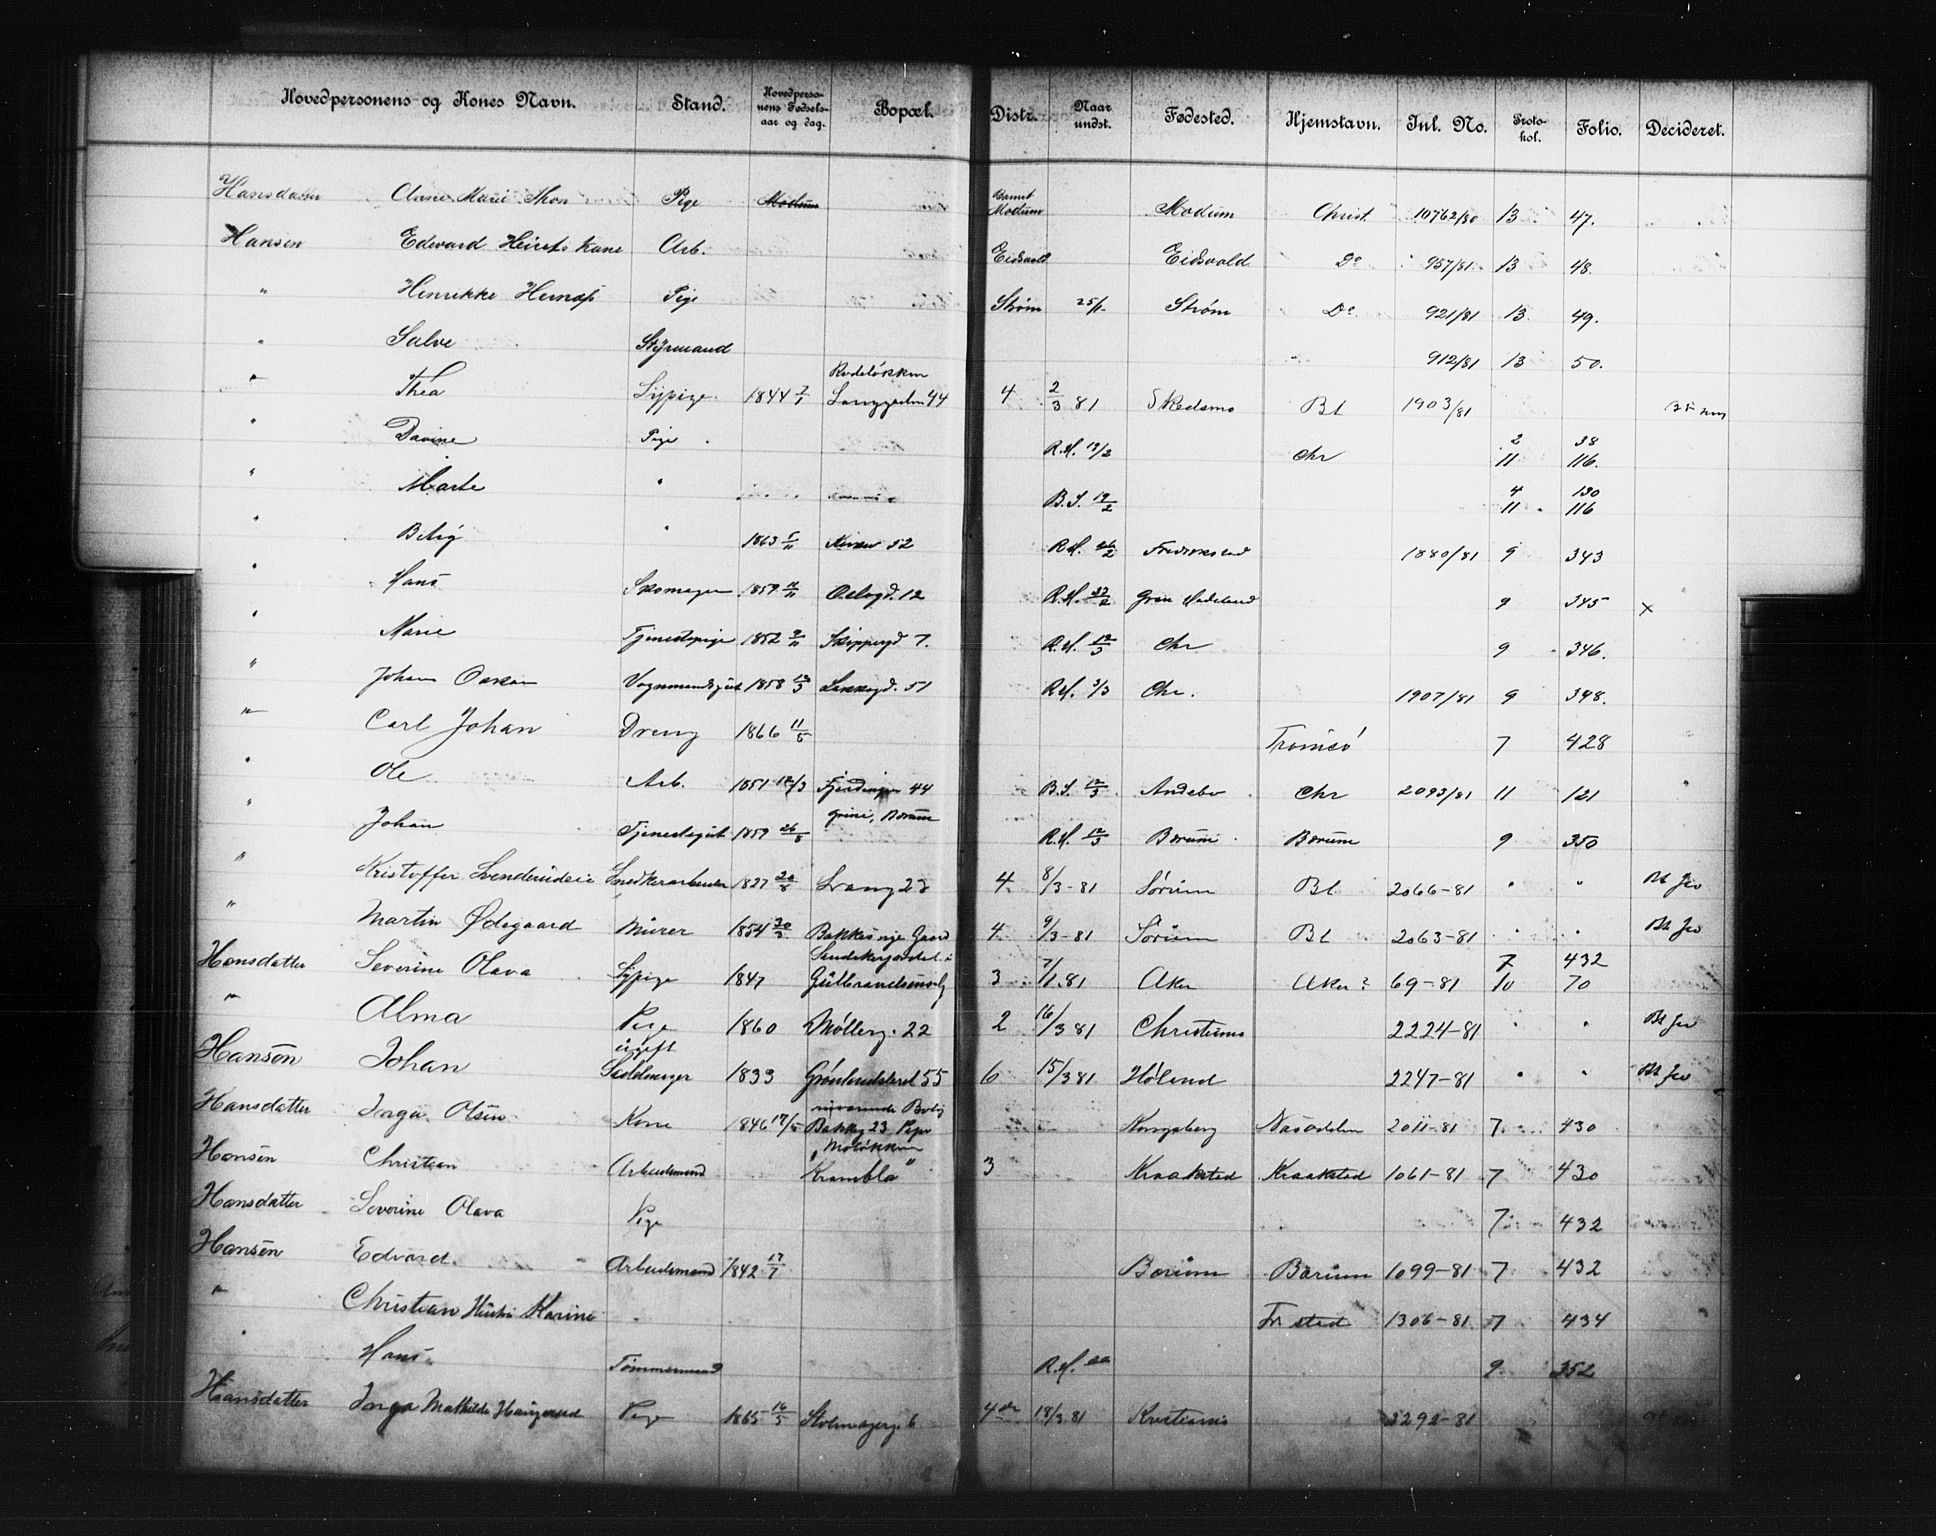 Hovedpersonens og Kones Navn. Stand. Hovedpersonens Fødselsaar og dag. Bopæl. Distr. Naar undst. Fødested. Hjemstavn. Inl. No. Protokol. Folio. Decideret.
Hansdatter Anne Marie Pige Modum Modum Modum Christ. 10762/80 13 47.
Hansen Edevard Arb. Eidsvold Eidsvold Do 957/81 13 48.
" Henrikke Pige Strøm Strøm Do 921/81 13 49.
" Salve Styrmand 912/81 13 50.
" Thea Sypige 1844 Rodeløkken 44 4 2/3 81 Skedsmo Bl 1903/81
" Davine Pige R.H. Chr 2 38
11 116.
" Marte " B.S. 4 130
11 116
" " 1863 5/11 52 R.H. 1880/81 9 343
" Hans Skomager 1859 12 R.H. Gran Hadeland 9 345 x
" Marie Tjenestepige 1852 Skippergd 7. R.H. 12/3 Chr 9 346.
" Johan Oskar 1858 51 R.H. 3/3 Chr. 1907/81 9 348.
" Carl Johan Dreng 1866 11/5 Tromsø 7 428
" Ole Arb. 1851 12/3 44 B.S. 12/3 Andebo Chr 2093/81 11 121
" Johan Tjenestegut 1859 26/8 Grini, Bærum R.H. 12/3 Bærum Bærum 9 350
" Kristoffer Snedkerarbeider 1827 20/8 4 8/3-81 Sørum Bl 2066-81 " "
" Martin Ødegaard Murer 1854 30/3 Bakkes nye Gaard 4 9/3-81 Sørum Bl 2063-81 " "
Hansdatter Severine Olava Sypige 1847 3 7/1 81 Aker Aker? 69-81 7 432
10 70
" Alma Pige 1860 Møllerg. 22 2 16/3 81 Christiania 2224-81 " "
Hansen Johan ugift Sadelmager 1833 Grønlandsleret 55 6 15/3 81 Høland 2247-81 " "
Hansdatter Inga Olsen Kone 1846 17/5 nuværende Bolig Bakkg 23 Kongsberg Næsodden 2011-81 7 430
Hansen Christian Arbeidsmand Krambla" 3 Kraakstad Kraakstad 1061-81 7 430
Hansdatter Severine Olava Pige 7 432
Hansen Edvard Arbeidsmand 1842 17/7 Bærum Bærum 1099-81 7 432
" Christian Hustru Karine Fr sted 1306-81 7 434
" Hans Tømmermand R.H. 9. 352
Hansdatter Inga Mathilde Pige 1865 16/5 6 4de 18/3 81 Kristiania 2292-81